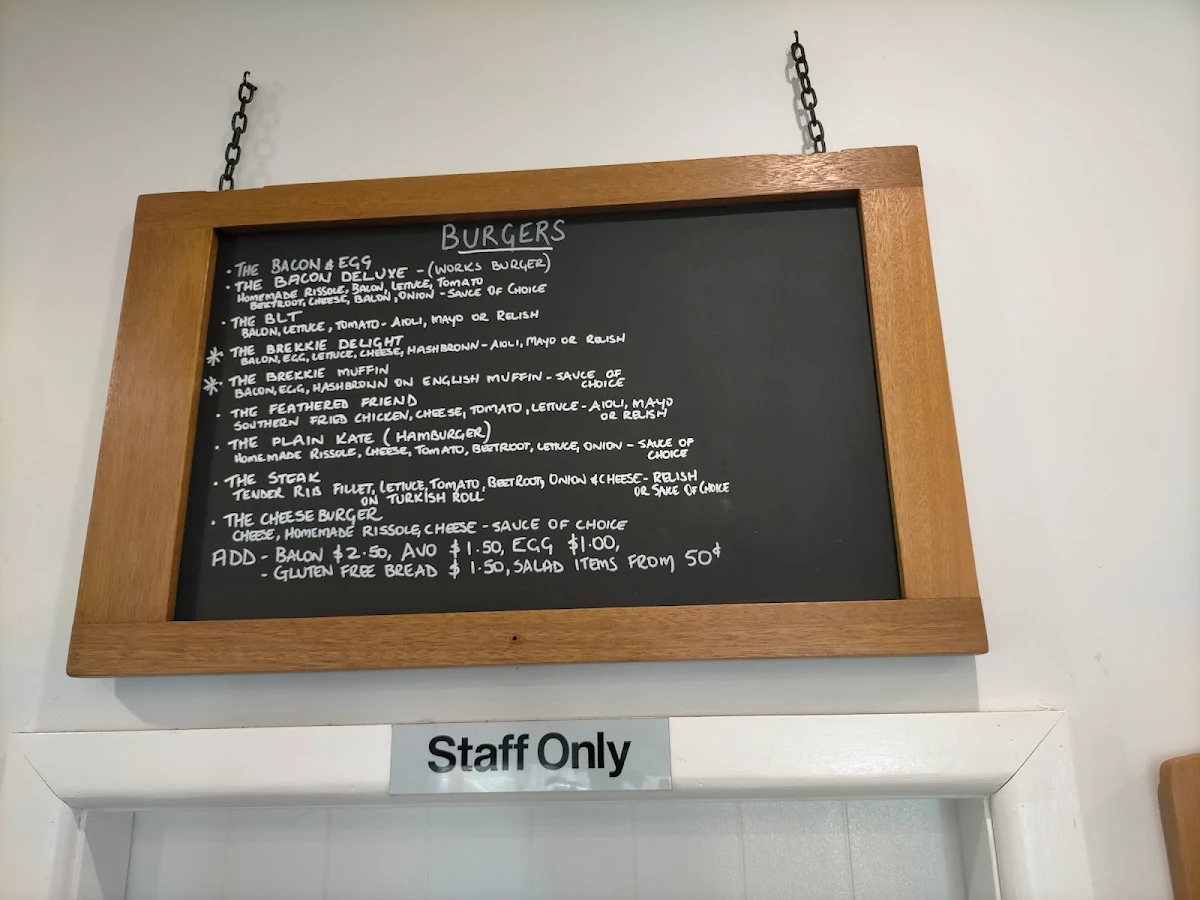 BURGERS
• THE BACON & EGG
• THE BACON DELUXE - (WORKS BURGER)
HOMEMADE RISSOLE, BACON, LETTUCE, TOMATO
BEETROOT, CHEESE, BACON, ONION - SAUCE OF CHOICE
• THE BLT
BACON, LETTUCE, TOMATO - AIOLI, MAYO OR RELISH
* • THE BREKKIE DELIGHT
BACON, EGG, LETTUCE, CHEESE, HASHBROWN - AIOLI, MAYO OR RELISH
* • THE BREKKIE MUFFIN
BACON, EGG, HASHBROWN ON ENGLISH MUFFIN - SAUCE OF
CHOICE
• THE FEATHERED FRIEND
SOUTHERN FRIED CHICKEN, CHEESE, TOMATO, LETTUCE - AIOLI, MAYO
OR RELISH
• THE PLAIN KATE (HAMBURGER)
HOMEMADE RISSOLE, CHEESE, TOMATO, BEETROOT, LETTUCE, ONION - SAUCE OF
CHOICE
• THE STEAK
TENDER RIB FILLET, LETTUCE, TOMATO, BEETROOT, ONION & CHEESE - RELISH
ON TURKISH ROLL OR SAUCE OF CHOICE
• THE CHEESEBURGER
CHEESE, HOMEMADE RISSOLE, CHEESE - SAUCE OF CHOICE
ADD - BACON $2.50, AVO $1.50, EGG $1.00,
- GLUTEN FREE BREAD $1.50, SALAD ITEMS FROM 50¢
Staff Only